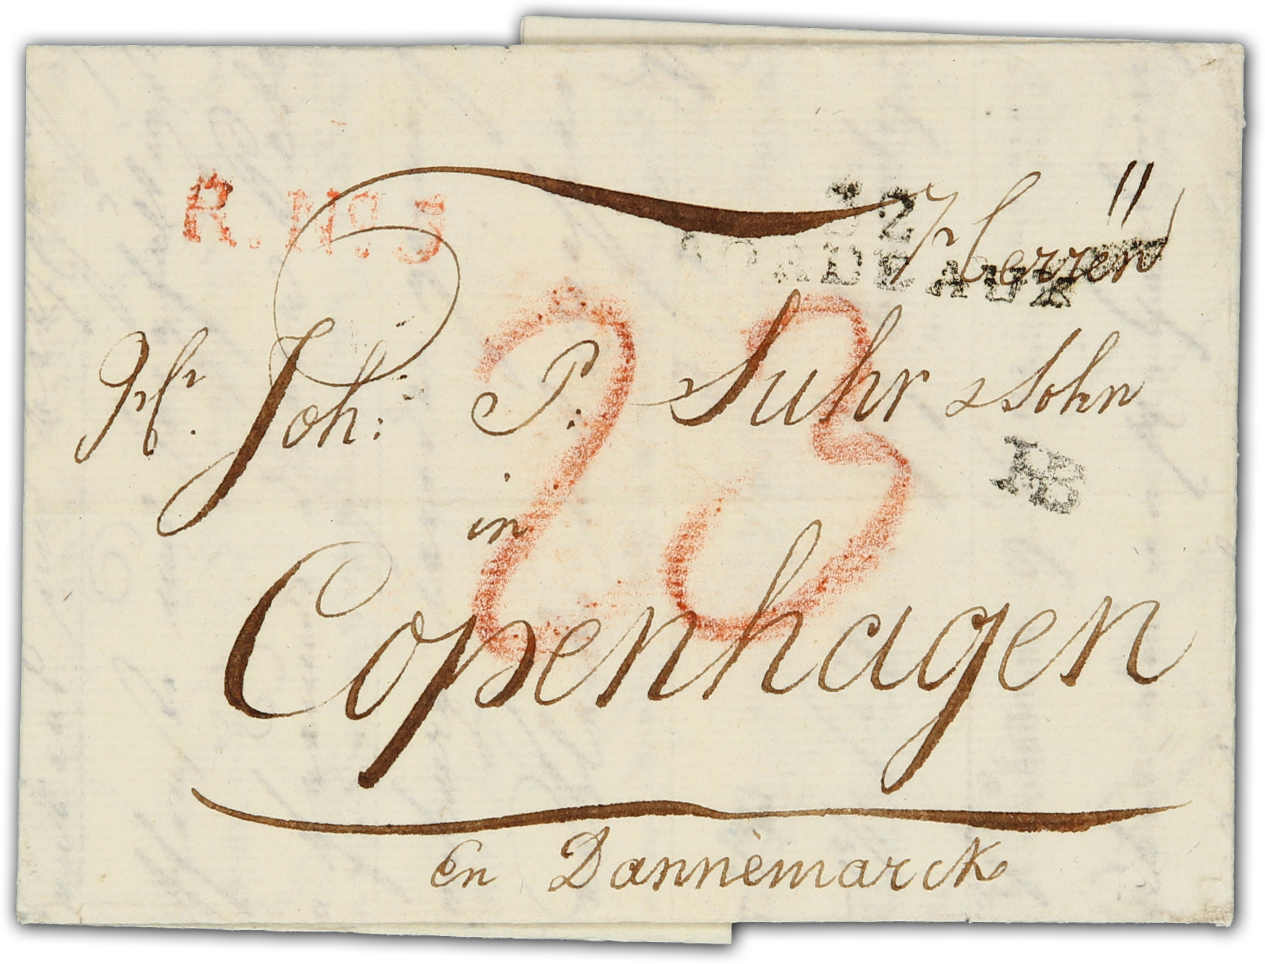 R. No. 3
32
BORDEAUX
Herren
Hr. Joh: P. Suhr & Sohn
HB
23
in
Copenhagen
En Dannemarck